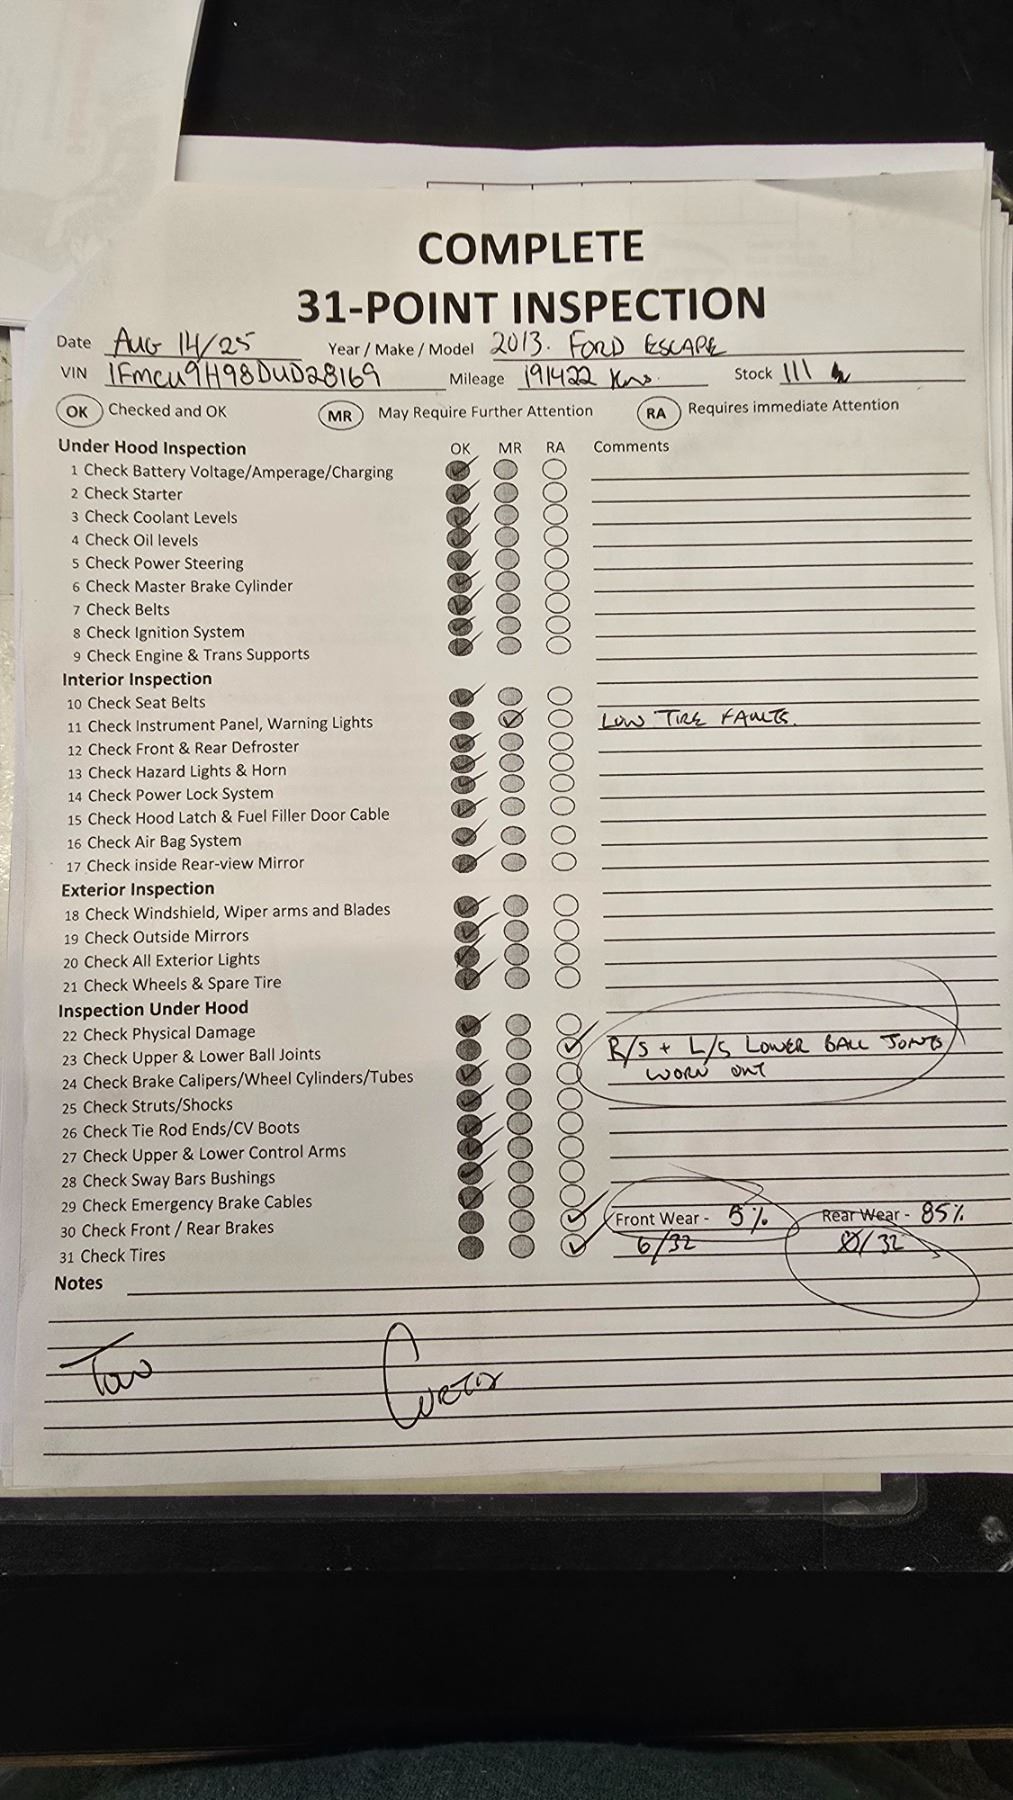 COMPLETE
31-POINT INSPECTION
Date AUG 14/25 Year / Make / Model 2013. FORD ESCAPE
VIN 1FMCU9H98DUD28169 Mileage 191422 Kms. Stock 111
OK Checked and OK MR May Require Further Attention RA Requires immediate Attention
Under Hood Inspection OK MR RA Comments
1 Check Battery Voltage/Amperage/Charging
2 Check Starter
3 Check Coolant Levels
4 Check Oil levels
5 Check Power Steering
6 Check Master Brake Cylinder
7 Check Belts
8 Check Ignition System
9 Check Engine & Trans Supports
Interior Inspection
10 Check Seat Belts
11 Check Instrument Panel, Warning Lights LOW TIRE FAULTS.
12 Check Front & Rear Defroster
13 Check Hazard Lights & Horn
14 Check Power Lock System
15 Check Hood Latch & Fuel Filler Door Cable
16 Check Air Bag System
17 Check inside Rear-view Mirror
Exterior Inspection
18 Check Windshield, Wiper arms and Blades
19 Check Outside Mirrors
20 Check All Exterior Lights
21 Check Wheels & Spare Tire
Inspection Under Hood
22 Check Physical Damage
23 Check Upper & Lower Ball Joints R/S + L/S LOWER BALL JOINTS
24 Check Brake Calipers/Wheel Cylinders/Tubes WORN OUT
25 Check Struts/Shocks
26 Check Tie Rod Ends/CV Boots
27 Check Upper & Lower Control Arms
28 Check Sway Bars Bushings
29 Check Emergency Brake Cables
30 Check Front / Rear Brakes Front Wear - 5% Rear Wear - 85%
31 Check Tires 6/32 /32
Notes